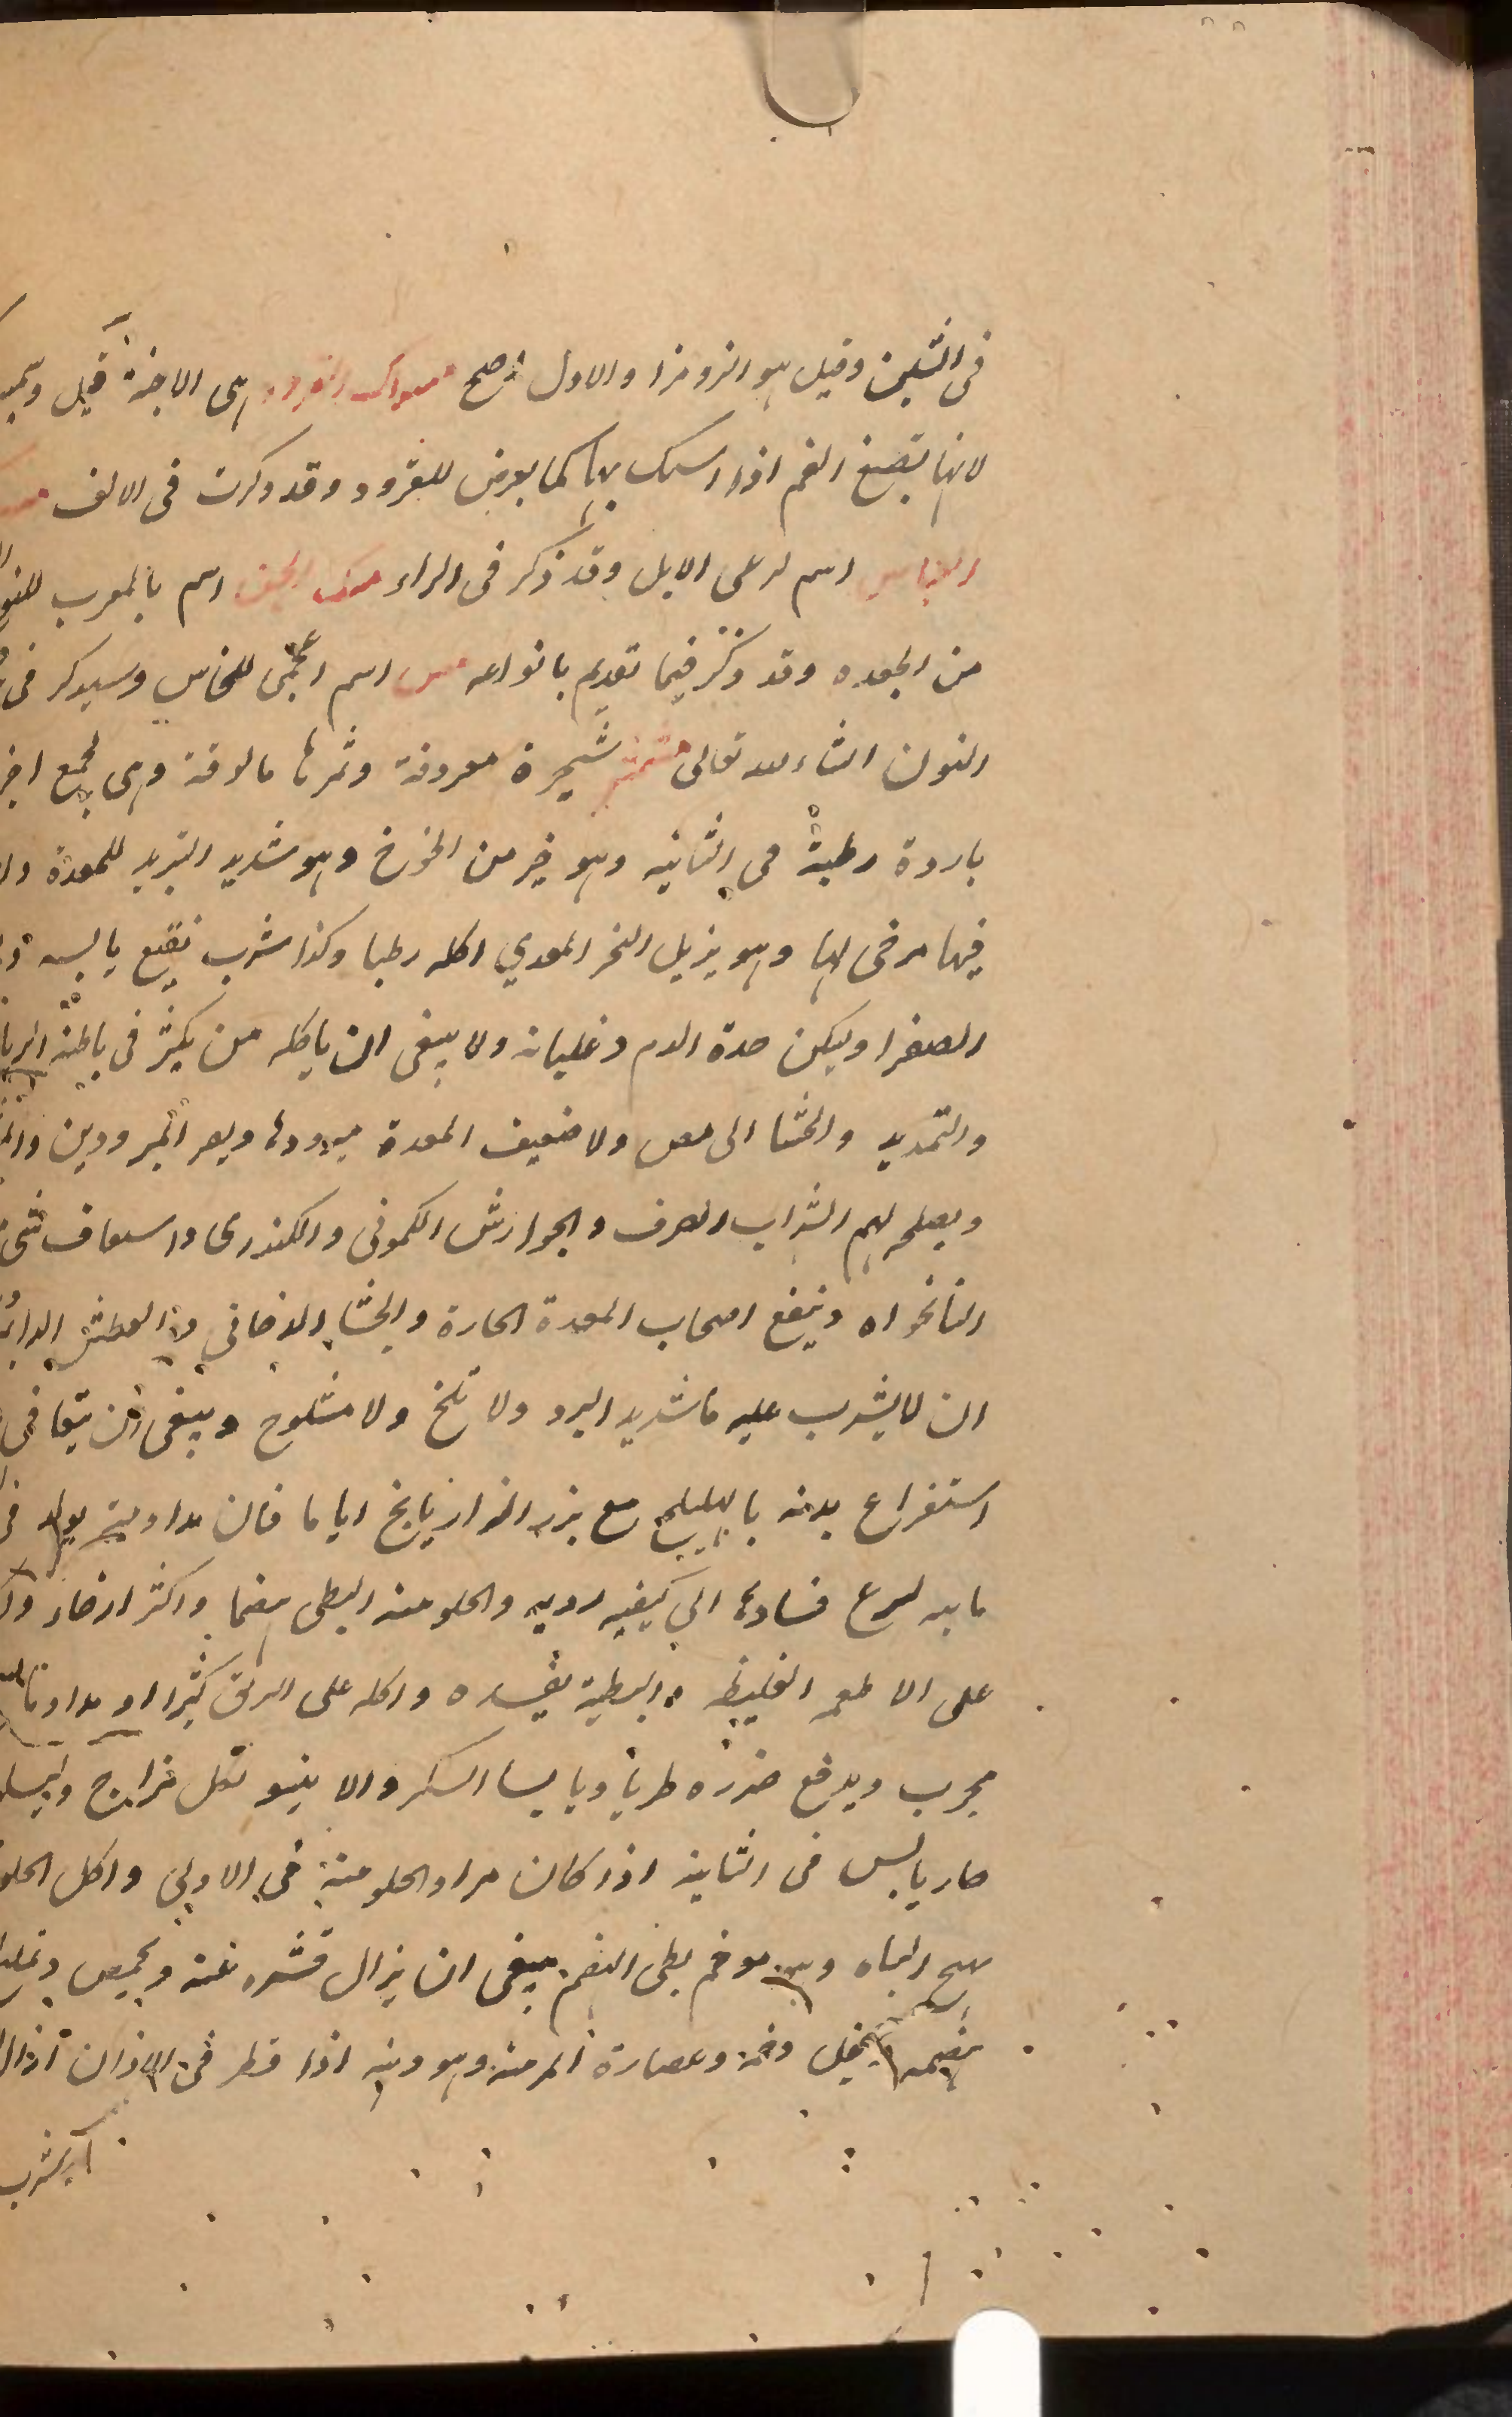 فى الشين وقيل هو الزومزا والاول اصح مسواك القرود هى الاجنة قيل وسميت
لانها تصبغ الفم اذا استك بها كما يعرض للقرود وقد ذكرت فى الالف
اسم لرعى الابل وقد ذكر فى الراء مسك الجن اسم بالمغرب للنوع
من الجعده وقد ذكر فيما تقدم بانواعه مس اسم اعجمى للنحاس وسيذكر فى
النون انشاء الله تعالى مشمش شجرة معروفة وثمرها مالوفة وهى بجميع اجز
باردة رطبة فى الثانيه وهو خير من الخوخ وهو شديد التبريد للمعدة
فيها مرخى لها وهو يزيل البخر المعدي اكله رطبا وكذا شرب نقيع يابسه
الصفرا ويسكن حدة الدم وغليانه ولا ينبغى ان ياكله من يكثر فى باطنه الريا
والتمديد والجشا الحامض ولا ضعيف المعدة مبرودها ويضر المبرودين
ويصلحه لهم الشراب الصرف والجوارش الكمونى والكندرى واستفاف شى
النانخواه وينفع اصحاب المعدة الحارة والجشا الدخانى والعطش الدائم
ان لا يشرب عليه ما شديد البرد ولا ثلج ولا مثلوج وينبغى ان يتعافى
استفراغ بدنه بالهليلج مع بزر الرازيانج اياما فان مداومته يولد فى
مايه لسرع فسادها الى كيفيه رديه والحلو منه ابطى هضما واكثر ارخاء
على الاطعمه الغليظه البطية يفسده واكله على الريق كثيرا او مداوما
مجرب ويدفع ضرره طريا ويابسا السكر والانيسون لكل مزاج
حار يابس فى الثانية اذا كان مرا والحلو منه فى الاولى واكل الحلو
يهيج الباه وهو موخم بطى الهضم ينبغى ان يزال قشره عنه ويحمص
بهضمه وعصارة المر منه ودهنه اذا قطر فى الاذان ازال
يشرب